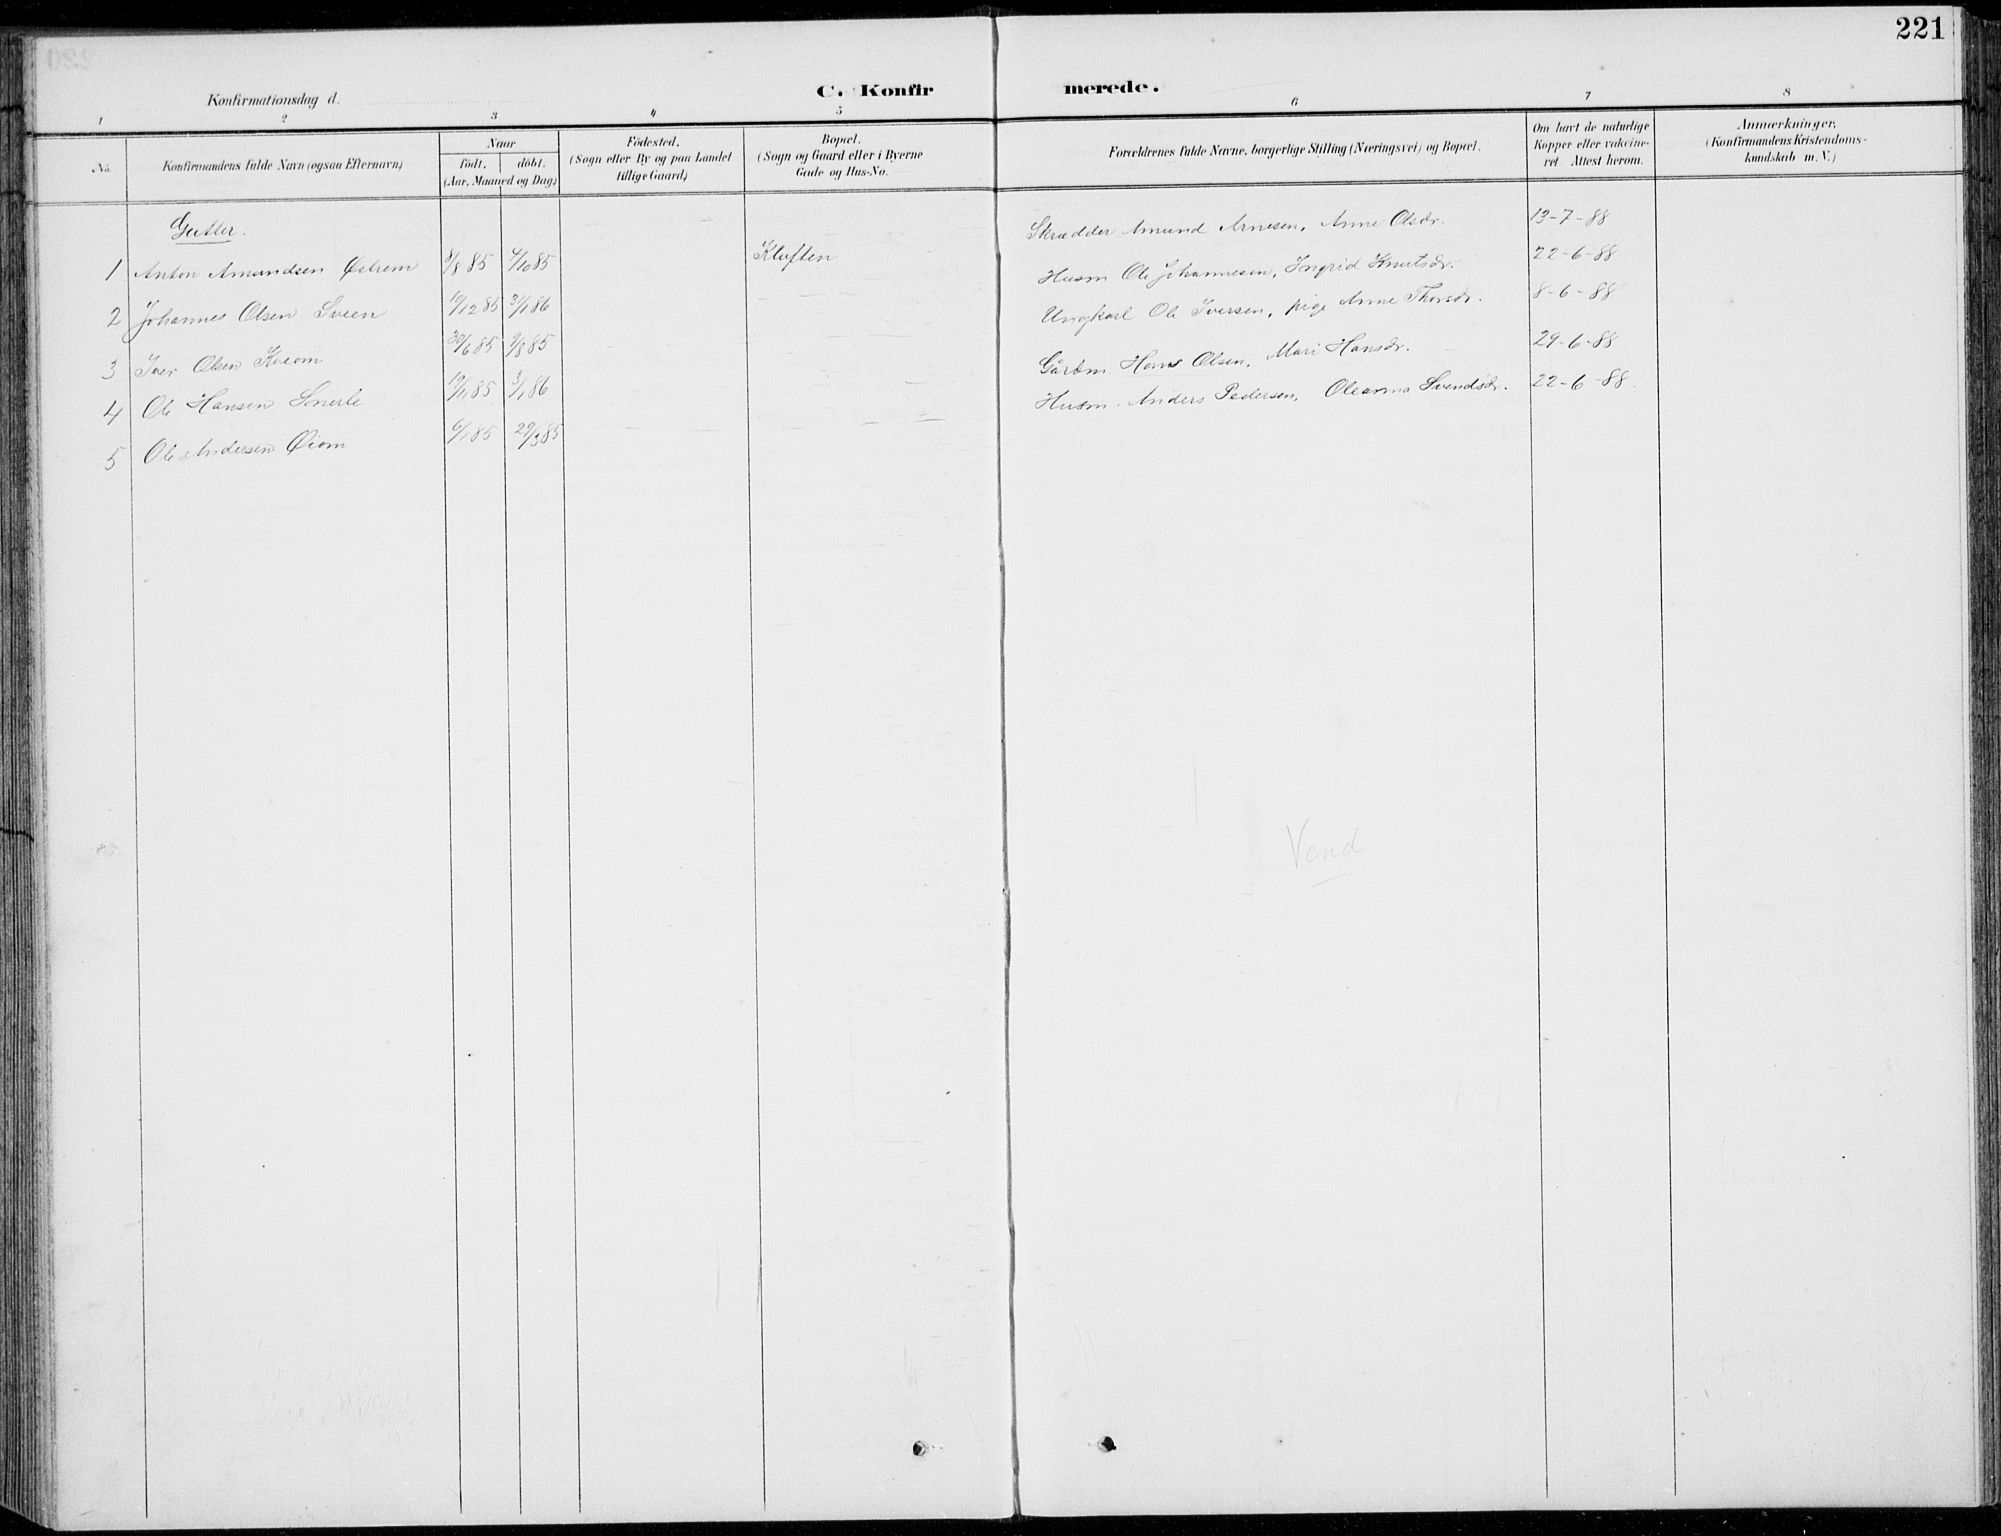 221
Konfirmationsdag d.
C. Konfirmerede.
1 2 3 4 5 6 7 8
No. Konfirmandens fulde Navn (ogsaa Efternavn) Naar født. døbt. (Aar, Maaned og Dag) Fødested. (Sogn eller By og paa Landet tillige Gaard) Bopæl. (Sogn og Gaard eller i Byerne Gade og Hus-No. Forældrenes fulde Navne, borgerlige Stilling (Næringsvei) og Bopæl. Om havt de naturlige Kopper eller vakcineret. Attest herom. Anmærkninger. (Konfirmandens Kristendomskundskab m. V.)
Gutter.
1 Anton Amundsen Østrem 9/8 85 4/10 85 Kluften Skrædder Amund Arnesen, Anne Olsdr. 13-7-88
2 Johannes Olsen Sveen 10/12 85 31/1 86 Husm Ole Johannesen, Ingrid Knutsdr. 22-6-88
3 Iver Olsen Kveom 30/6 85 9/8 85 Ungkarl Ole Iversen, pige Anne Thorsdr. 8-6-88
4 Ole Hansen Snerle 19/11 85 3/1 86 Gårdm Hans Olsen, Mari Hansdr. 29-6-88
5 Ole Andersen Øiom 6/1 85 29/3 85 Husm. Anders Pedersen, Oleanna Svendsdr. 22-6-88.
Vend